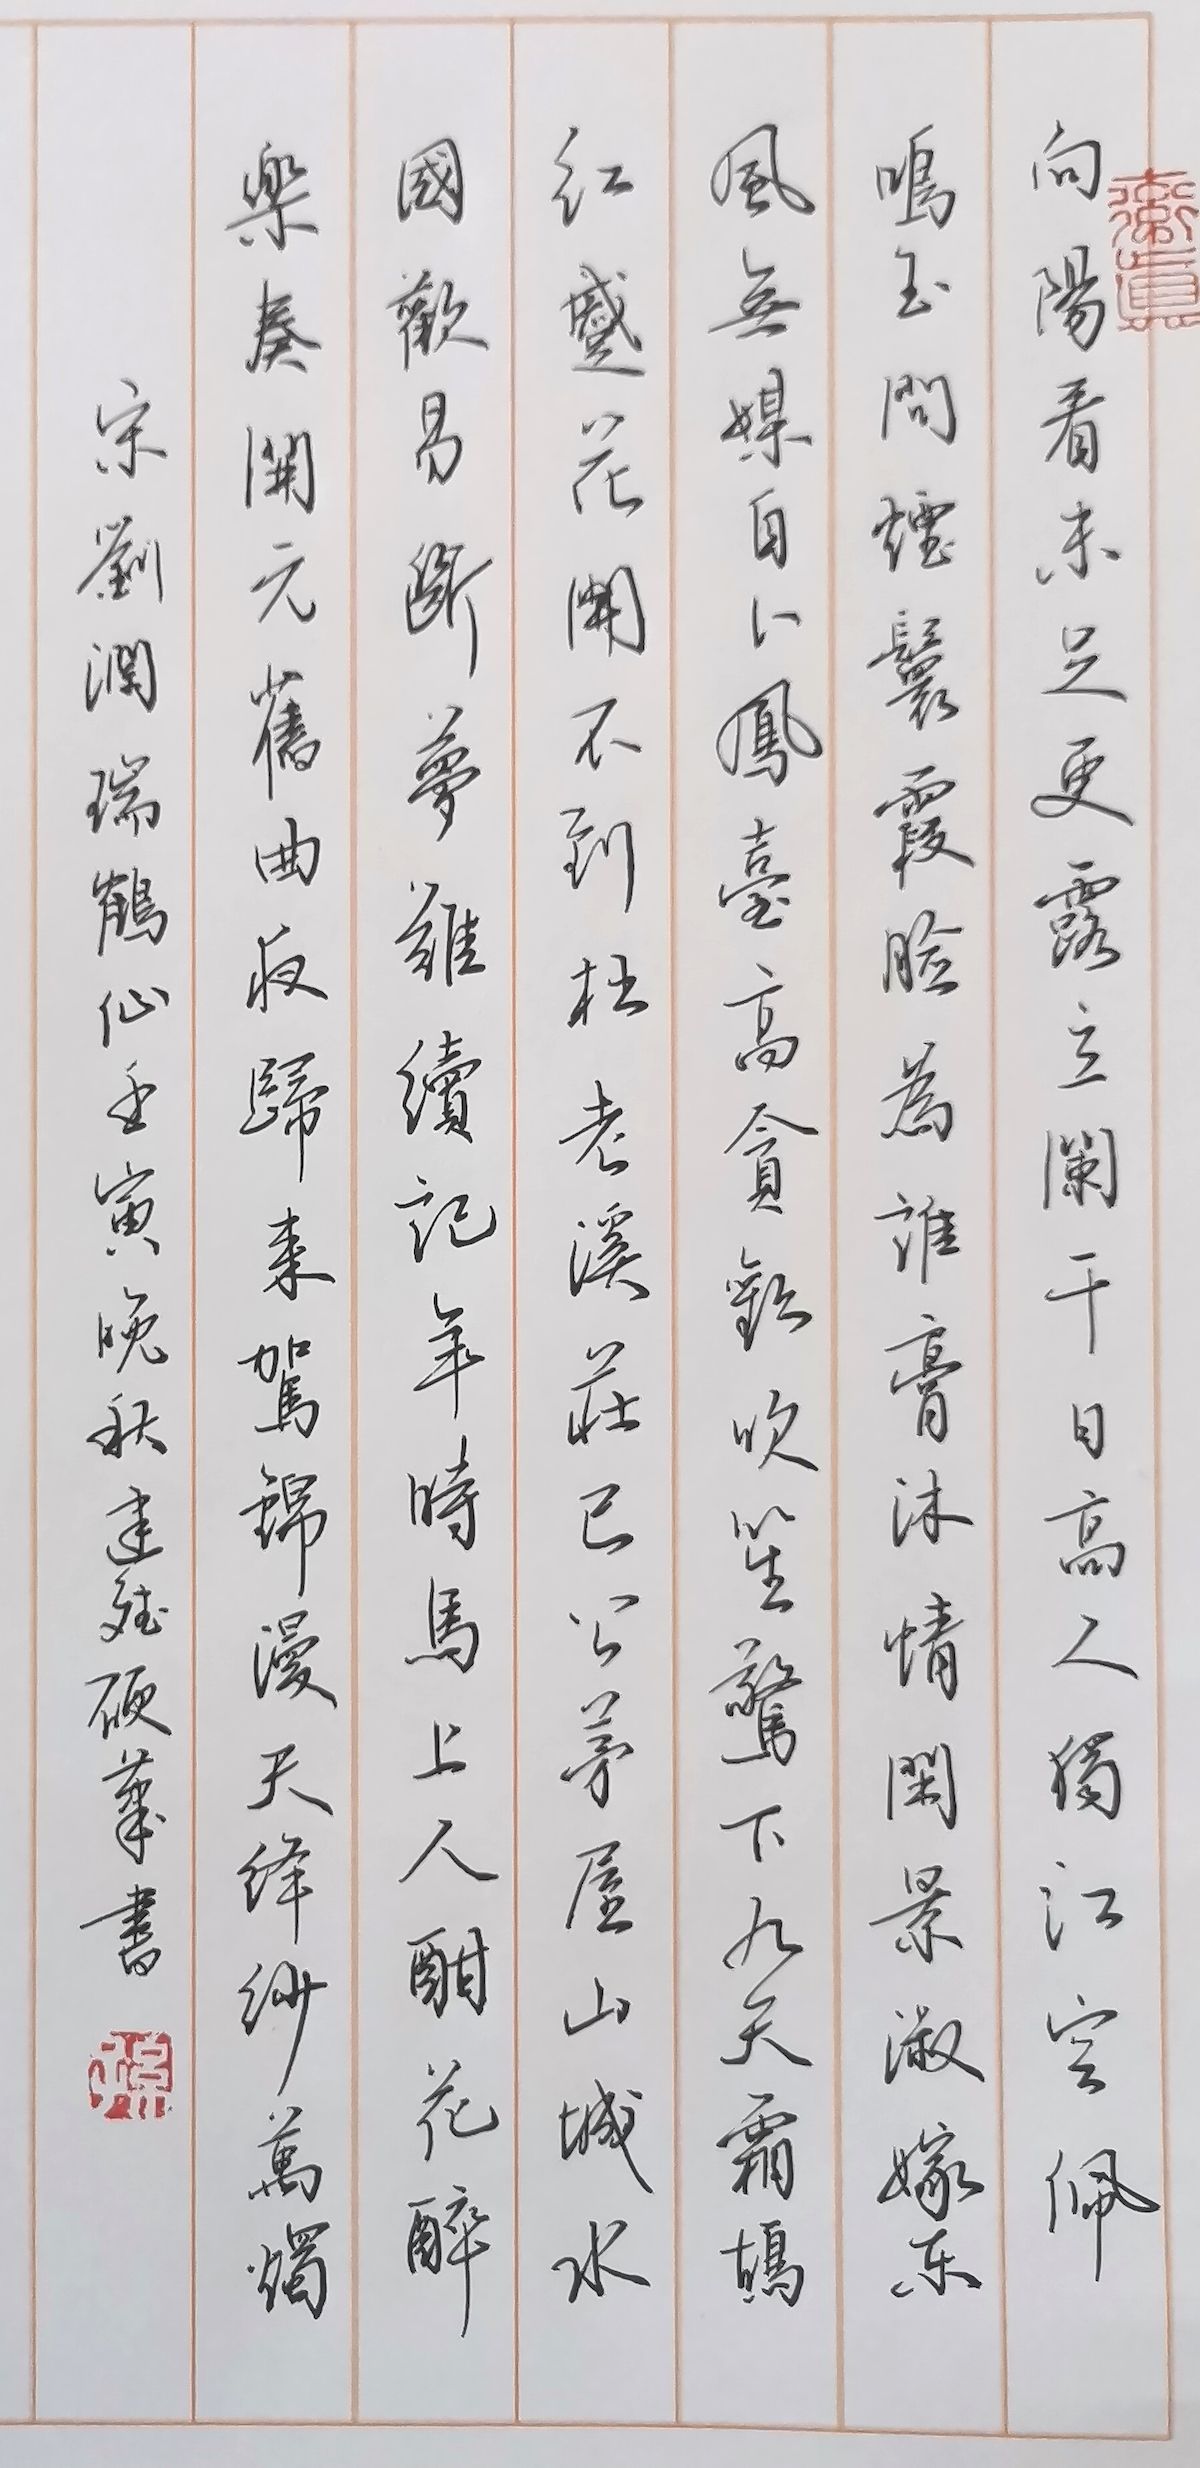 向陽看未足更露立闌干日高人獨江空佩
鳴玉問煙鬟霞臉為誰膏沐情閑景淑嫁東
風無媒自卜鳳臺高貪吹笙驚下九天霜鵠
紅蹙花開不到杜老溪莊已公茅屋山城水
國歡易斷夢難續記年時馬上人酣花醉
樂奏開元舊曲夜歸來駕錦漫天絳紗萬燭
宋劉瀾瑞鶴仙壬寅晚秋建硬筆書